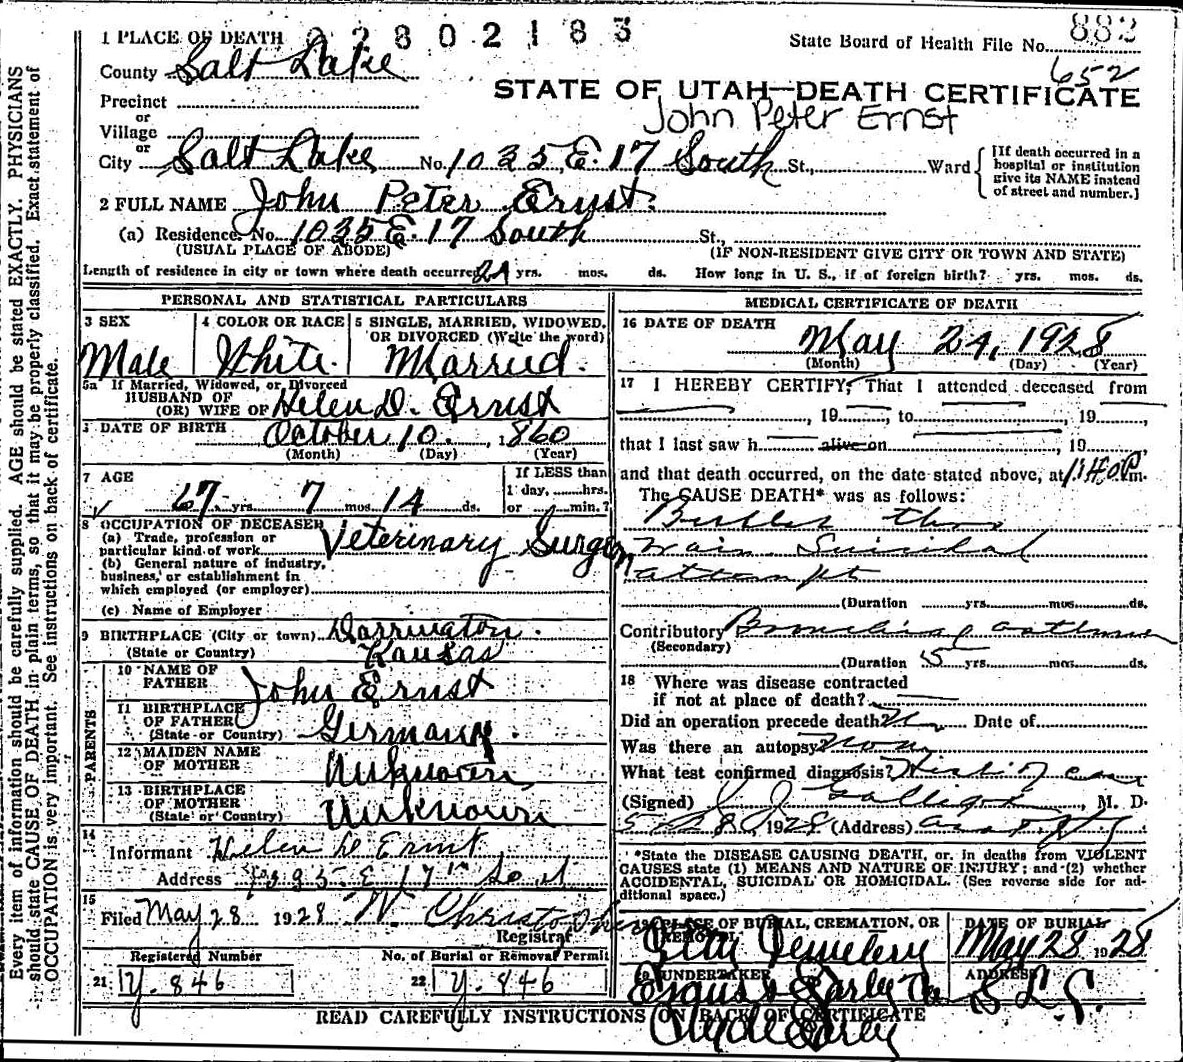 1 PLACE OF DEATH 02802183
State Board of Health File No. 882
County Salt Lake
652
STATE OF UTAH—DEATH CERTIFICATE
Precinct
or
Village
John Peter Ernst
or
City Salt Lake No. 1035 E. 17 South St., Ward
[If death occurred in a hospital or institution give its NAME instead of street and number.]
2 FULL NAME John Peter Ernst.
(a) Residence. No. 1035 E. 17 South St.,
(USUAL PLACE OF ABODE) (IF NON-RESIDENT GIVE CITY OR TOWN AND STATE)
Length of residence in city or town where death occurred yrs. mos. ds. How long in U. S., if of foreign birth? yrs. mos. ds.
PERSONAL AND STATISTICAL PARTICULARS
3 SEX 4 COLOR OR RACE 5 SINGLE, MARRIED, WIDOWED, OR DIVORCED (Write the word)
Male White. Married.
5a If Married, Widowed, or Divorced
HUSBAND OF
(OR) WIFE OF Helen D. Ernst
DATE OF BIRTH October 10. 1860
(Month) (Day) (Year)
7 AGE If LESS than
1 day, hrs.
67 yrs. 7 mos. 14 ds. or min.?
8 OCCUPATION OF DECEASED
(a) Trade, profession or
particular kind of work Veterinary Surgeon
(b) General nature of industry,
business, or establishment in
which employed (or employer)
(c) Name of Employer
9 BIRTHPLACE (City or town) Darrington.
(State or Country) Kansas
PARENTS
10 NAME OF
FATHER John Ernst
11 BIRTHPLACE
OF FATHER
(State or Country) Germany.
12 MAIDEN NAME
OF MOTHER Unknown
13 BIRTHPLACE
OF MOTHER
(State or Country) Unknown
14
Informant Helen D Ernst
Address E 17th So st
15
Filed May 28 1928 W Christopherson
Registrar
Registered Number No. of Burial or Removal Permit
21 Y. 846 22 Y. 846
MEDICAL CERTIFICATE OF DEATH
16 DATE OF DEATH
May 24, 1928
(Month) (Day) (Year)
17 I HEREBY CERTIFY, That I attended deceased from
, 19 to , 19 ,
that I last saw h alive on , 19
and that death occurred, on the date stated above, at 1:40 P.m.
The CAUSE DEATH* was as follows:
Suicidal
attempt
(Duration yrs. mos. ds.
Contributory Bronchial asthma
(Secondary)
(Duration 5 yrs. mos. ds.
18 Where was disease contracted
if not at place of death?
Did an operation precede death? No Date of
Was there an autopsy
What test confirmed diagnosis?
(Signed) J J Galligan, M. D.
5-28, 1928 (Address)
*State the DISEASE CAUSING DEATH, or, in deaths from VIOLENT
CAUSES state (1) MEANS AND NATURE OF INJURY; and (2) whether
ACCIDENTAL, SUICIDAL OR HOMICIDAL. (See reverse side for ad-
ditional space.)
19 PLACE OF BURIAL, CREMATION, OR REMOVAL DATE OF BURIAL
City Cemetery May 28 1928
UNDERTAKER ADDRESS
S. L. C.
Clyde Early
READ CAREFULLY INSTRUCTIONS ON BACK OF CERTIFICATE
Every item of information should be carefully supplied. AGE should be stated EXACTLY. PHYSICIANS
should state CAUSE OF DEATH in plain terms, so that it may be properly classified. Exact statement of
OCCUPATION is very important. See instructions on back of certificate.